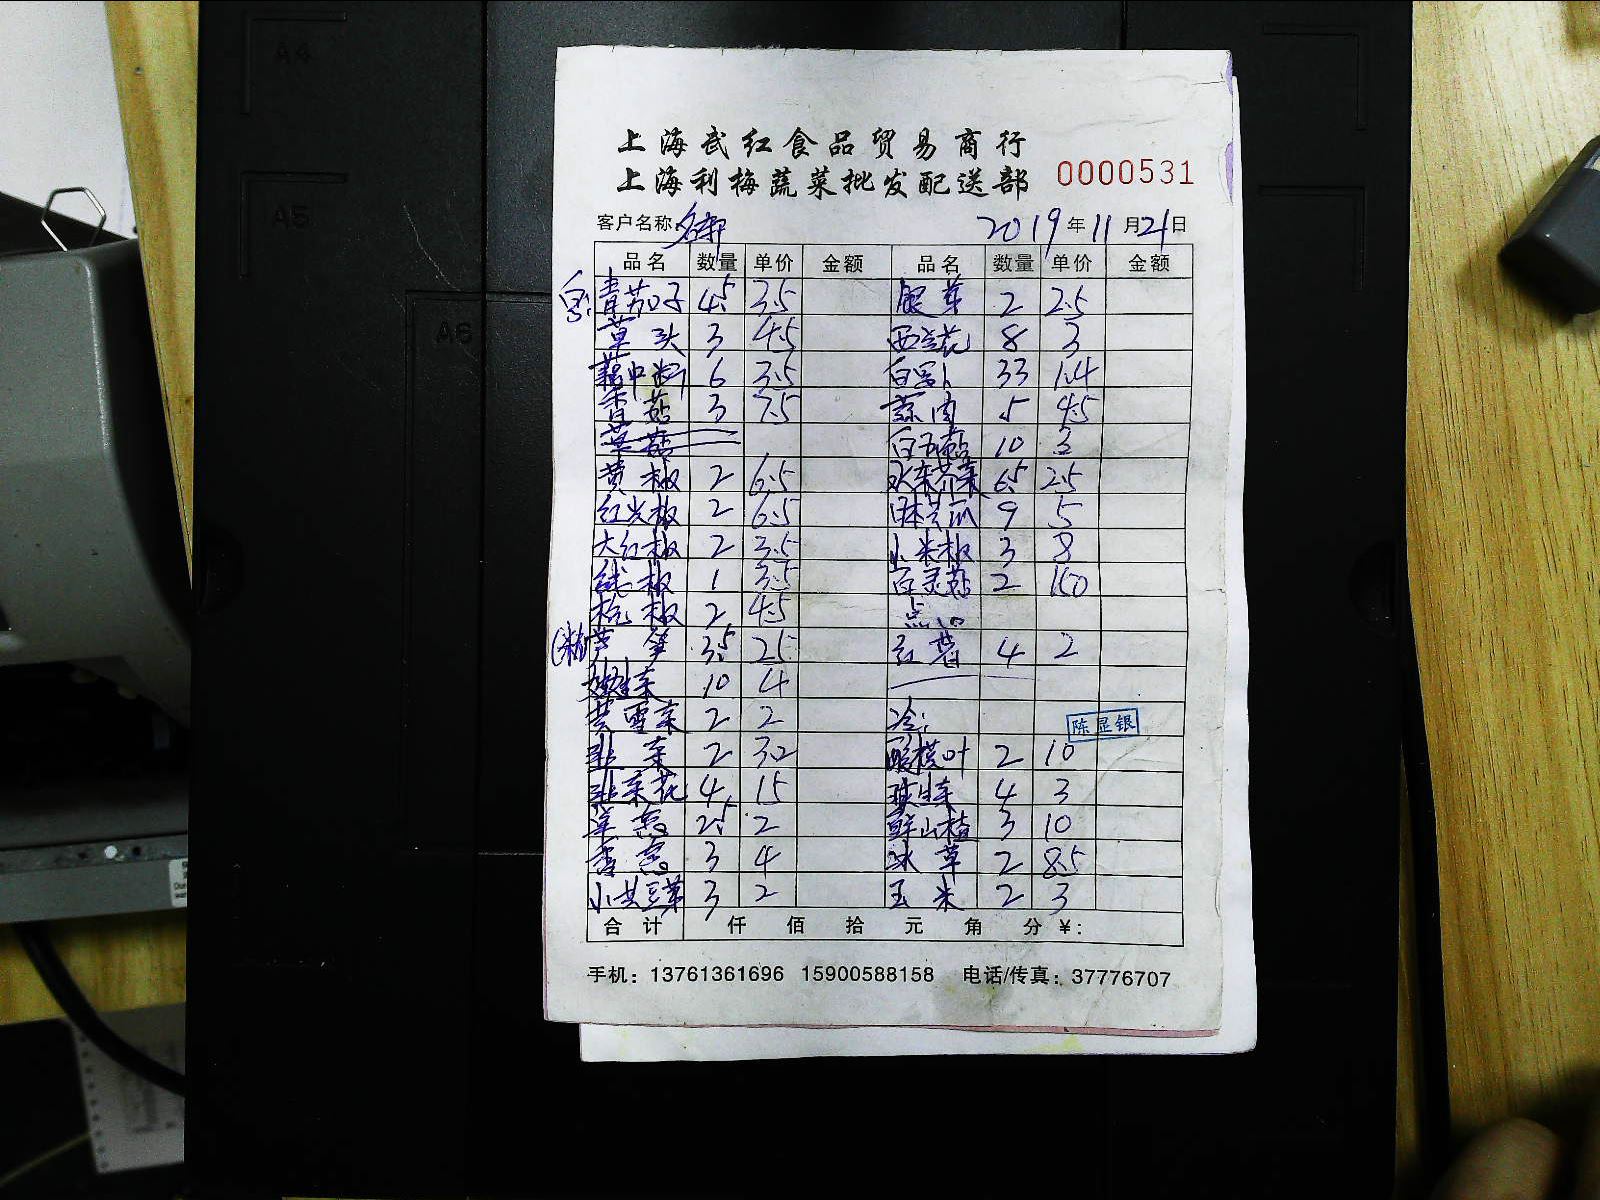 A4
A5
A6
上海武红食品贸易商行
上海利梅蔬菜批发配送部 0000531
客户名称 2019年11月21日
品名 数量 单价 金额 品名 数量 单价 金额
青茄子 4.5 3.5 银芽 2 2.5
草头 3 4.5 西兰花 8 3
藕中断 6 3.5 白萝卜 33 1.4
香菇 3 7.5 蒜肉 5 4.5
草菇 白玉菇 10 3
黄椒 2 6.5 6.5 2.5
红尖椒 2 6.5 9 5
大红椒 2 3.5 小米椒 3 8
线椒 1 3.5 白灵菇 2 150
杭椒 2 4.5 点心
芦笋 3.5 25 红薯 4 2
10 4
2 2 冷:
韭菜 2 3.2 2 10
韭菜花 4 15 4 3
草葱 2.5 2 鲜山楂 3 10
香葱 3 4 冰草 2 8.5
小黄豆芽 3 2 玉米 2 3
陈显银
合计 仟 佰 拾 元 角 分 ¥:
手机: 13761361696 15900588158 电话/传真: 37776707